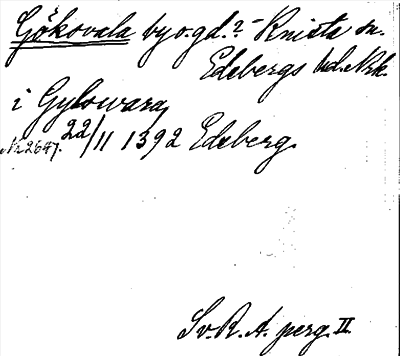 Gökovala by o. gd.? Knista sn.
Edsbergs hd. Nrk.
i Gylowara
Nr 2647. 22/11 1392 Edsberg.
Sv. R. A. perg. II